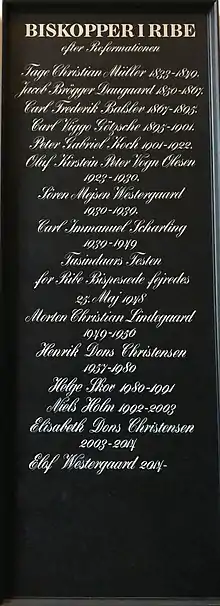 BISKOPPER I RIBE
efter Reformationen
Tage Christian Müller 1833-1849.
Jacob Brøgger Daugaard 1850-1867.
Carl Frederik Balslev 1867-1895.
Carl Viggo Gøtzsche 1895-1901.
Peter Gabriel Koch 1901-1922.
Oluf Kirstein Peter Vogn Olesen
1923-1930.
Sören Mejsen Westergaard
1930-1939.
Carl Immanuel Scharling
1939-1949
Tusindaars Festen
for Ribe Bispesæde fejredes
25. Maj 1948
Morten Christian Lindegaard
1949-1956
Henrik Dons Christensen
1957-1980
Helge Skov 1980-1991
Niels Holm 1992-2003
Elisabeth Dons Christensen
2003-2014
Elof Westergaard 2014-